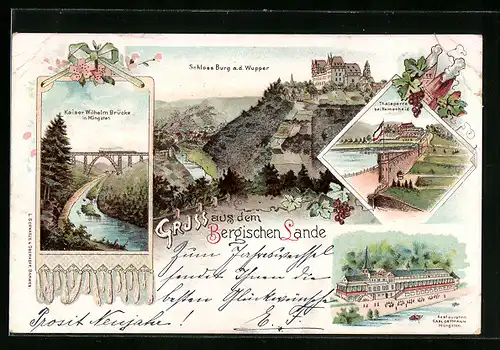 Schloss Burg a.d. Wupper
Kaiser Wilhelm Brücke
in Müngsten
Thalsperre
bei Remscheid
GRUSS aus dem
Bergischen Lande
Zum Jahreswechsel
sendet Ihnen die
besten Glückwünsche
Prosit Neujahr! E. F.
Restauration
Müngsten.